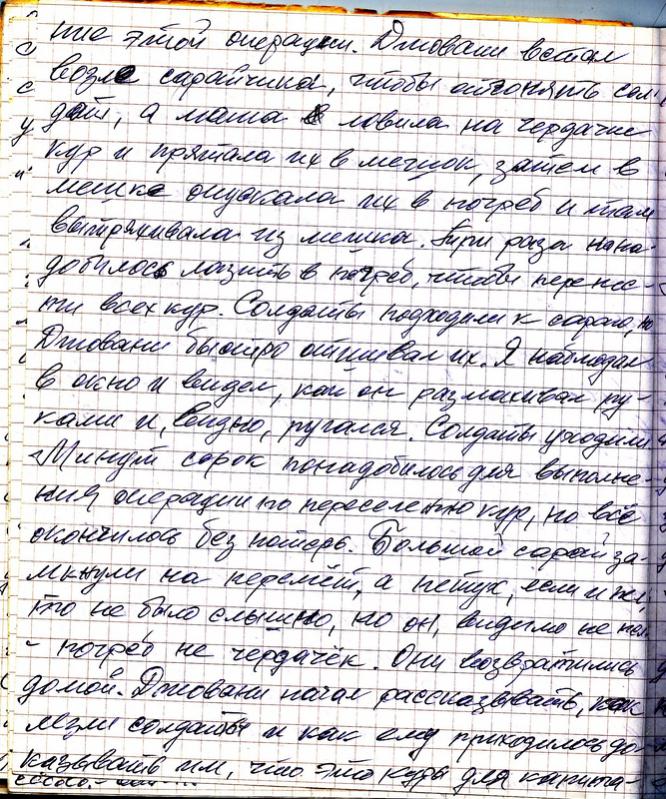 ние этой операции. Джовани встал
возле сарайчика, чтобы отгонять сол
дат, а мама ловила на чердачке
кур и прятала их в мешок, затем в
мешке опускала их в погреб и там
вытряхивала из мешка. Три раза пона-
добилось лазить в погреб, чтобы перенес-
ти всех кур. Солдаты подходили к сараю, но
Джовани быстро отшивал их. Я наблюдал
в окно и видел, как он размахивал ру-
ками и, видно, ругался. Солдаты уходили
Минут сорок понадобилось для выполне-
ния операции по переселению кур, но всё
окончилось без потерь. Большой сарай за-
мкнули на перемёт, а петух, если и пел,
то не было слышно, но он, видимо не пел
- погреб не чердачёк. Они возвратились
домой. Джовани начал рассказывать, как
лезли солдаты и как ему приходилось до-
казывать им, что это куры для капита-